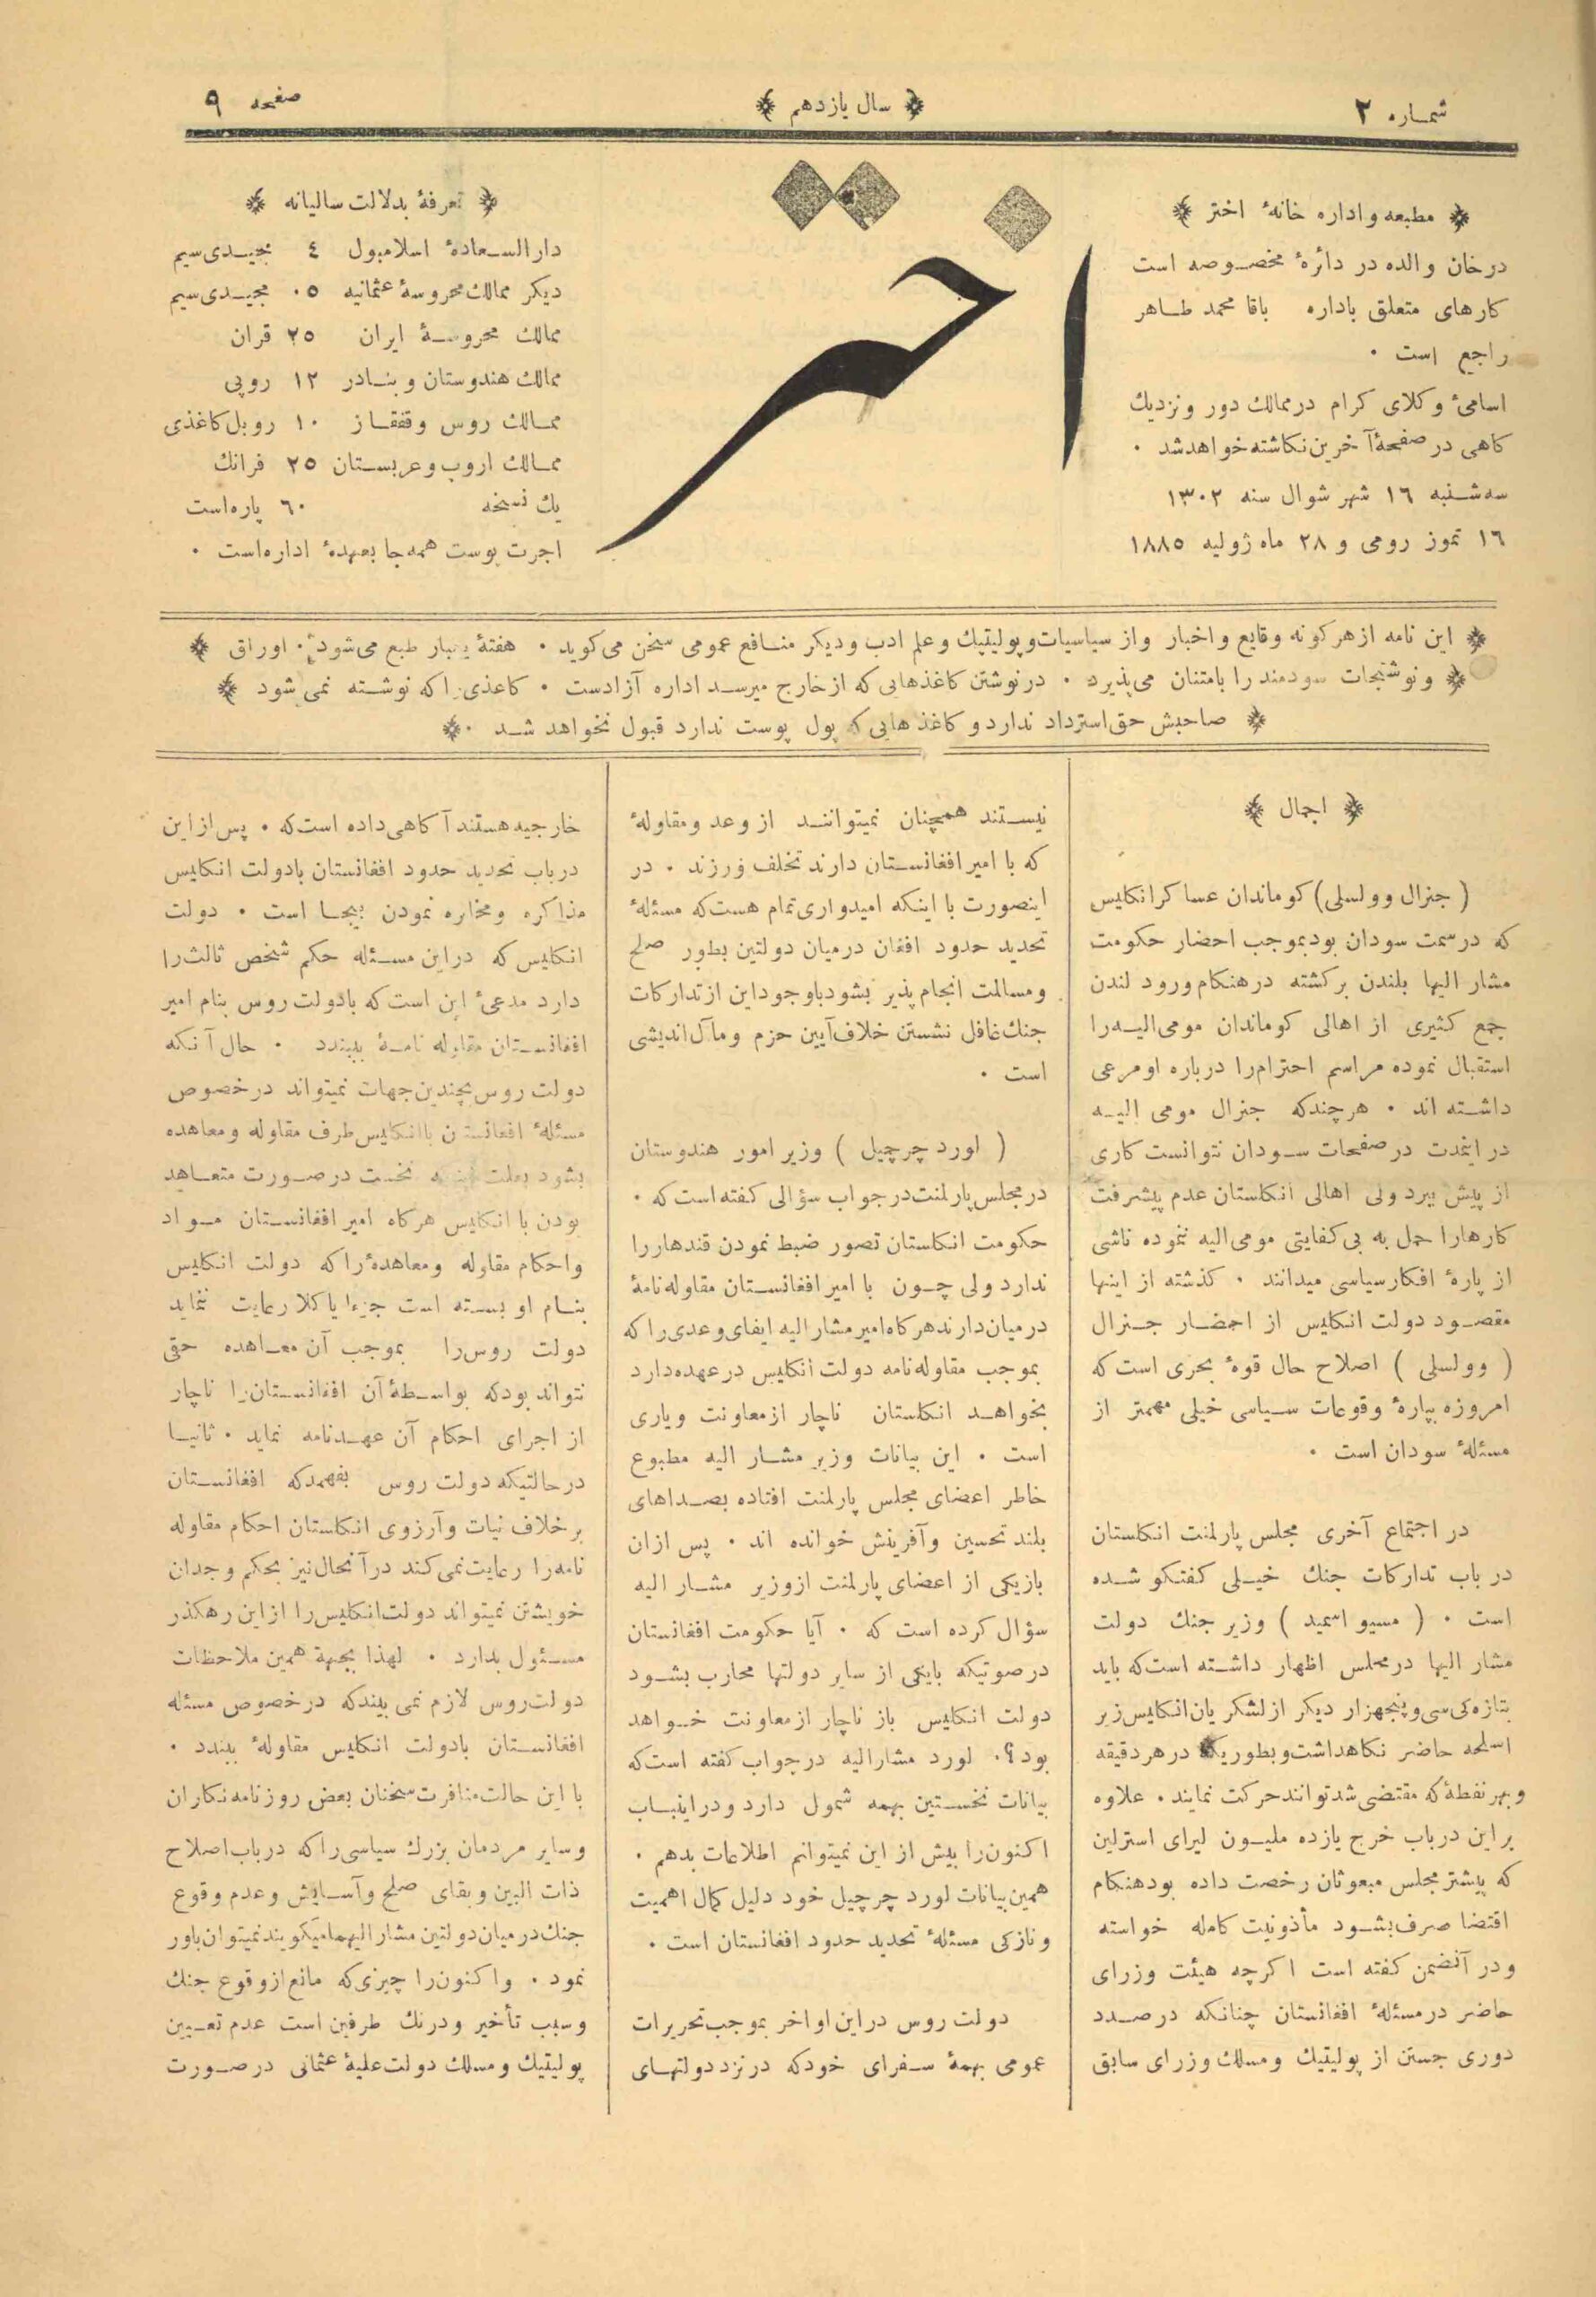 شماره ۲
﴿ سال یازدهم ﴾
صفحه ۹
﴿ مطبعه و اداره خانهٔ اختر ﴾
در خان والده در دائرهٔ مخصوصه است
کارهای متعلق باداره باقا محمد طاهر
راجع است ۰
اسامیٔ وکلای کرام در ممالك دور و نزدیك
کاهی در صفحهٔ آخرین نکاشته خواهد شد ۰
سه شنبه ۱٦ شهر شوال سنه ۱۳۰۲
۱٦ تموز رومی و ۲۸ ماه ژولیه ۱۸۸٥
اختر
﴿ تعرفهٔ بدلات سالیانه ﴾
دار السعادهٔ اسلامبول ٤ مجیدی سیم
دیکر ممالك محروسهٔ عثمانیه ۰٥ مجیدی سیم
ممالك محروسهٔ ایران ۲٥ قران
ممالك هندوستان و بنادر ۱۲ روپی
ممالك روس و قفقاز ۱۰ روبل کاغذی
ممالك اروپ و عربستان ۲٥ فرانك
یك نسخه ٦۰ پاره است
اجرت پوست همه جا بعهدهٔ اداره است ۰
﴿ این نامه از هر کونه وقایع و اخبار و از سیاسیات و پولیتیك و علم ادب و دیکر منافع عمومی سخن می کوید ۰ هفتهٔ یکبار طبع می شود ۰ اوراق ﴾
﴿ و نوشتجات سودمند را بامتنان می پذیرد ۰ در نوشتن کاغذهایی که از خارج میرسد اداره آزادست ۰ کاغذی را که نوشته نمی شود ﴾
﴿ صاحبش حق استرداد ندارد و کاغذ هایی که پول پوست ندارد قبول نخواهد شد ۰ ﴾
﴿ اجمال ﴾
( جنرال وولسلی ) کوماندان عساکر انکلیس
که در سمت سودان بود بموجب احضار حکومت
مشار الیها بلندن برکشته در هنکام ورود لندن
جمع کثیری از اهالی کوماندان مومی الیه را
استقبال نموده مراسم احترام را درباره او مرعی
داشته اند ۰ هرچند که جنرال مومی الیه
در اینمدت در صفحات سودان نتوانست کاری
از پیش ببرد ولی اهالی انکلستان عدم پیشرفت
کارها را حمل به بی کفایتی مومی الیه ننموده ناشی
از پارهٔ افکار سیاسی میدانند ۰ کذشته از اینها
مقصود دولت انکلیس از احضار جنرال
( وولسلی ) اصلاح حال قوهٔ بحری است که
امروزه بپارهٔ وقوعات سیاسی خیلی مهمتر از
مسئلهٔ سودان است ۰
در اجتماع آخری مجلس پارلمنت انکلستان
در باب تدارکات جنك خیلی کفتکو شده
است ۰ ( مسیو اسمید ) وزیر جنك دولت
مشار الیها در مجلس اظهار داشته است که باید
بتازه کی سی و پنجهزار دیکر از لشکریان انکلیس زیر
اسلحه حاضر نکاهداشت و بطوریکه در هر دقیقه
و بهر نقطهٔ که مقتضی شد توانند حرکت نمایند ۰ علاوه
بر این در باب خرج یازده ملیون لیرای استرلین
که پیشتر مجلس مبعوثان رخصت داده بود هنکام
اقتضا صرف بشود مأذونیت کامله خواسته
و در آنضمن کفته است اکرچه هیئت وزرای
حاضر در مسئلهٔ افغانستان چنانکه در صدد
دوری جستن از پولیتیك و مسلك وزرای سابق
نیستند همچنان نمیتوانند از وعد و مقاولهٔ
که با امیر افغانستان دارند تخلف ورزند ۰ در
اینصورت با اینکه امیدواری تمام هست که مسئلهٔ
تحدید حدود افغان در میان دولتین بطور صلح
و مسالمت انجام پذیر بشود باوجود این از تدارکات
جنك غافل نشستن خلاف آیین حزم و مآل اندیشی
است ۰
( لورد چرچیل ) وزیر امور هندوستان
در مجلس پارلمنت در جواب سؤالی کفته است که ۰
حکومت انکلستان تصور ضبط نمودن قندهار را
ندارد ولی چون با امیر افغانستان مقاوله نامهٔ
در میان دارند هرکاه امیر مشار الیه ایفای وعدی را که
بموجب مقاوله نامه دولت انکلیس در عهده دارد
بخواهد انکلستان ناچار از معاونت و یاری
است ۰ این بیانات وزیر مشار الیه مطبوع
خاطر اعضای مجلس پارلمنت افتاده بصداهای
بلند تحسین و آفرینش خوانده اند ۰ پس ازان
بازیکی از اعضای پارلمنت از وزیر مشار الیه
سؤال کرده است که ۰ آیا حکومت افغانستان
در صوتیکه بایکی از سایر دولتها محارب بشود
دولت انکلیس باز ناچار از معاونت خواهد
بود؟ ۰ لورد مشار الیه در جواب کفته است که
بیانات نخستین بهمه شمول دارد و در اینباب
اکنون را بیش از این نمیتوانم اطلاعات بدهم ۰
همین بیانات لورد چرچیل خود دلیل کمال اهمیت
و نازکی مسئلهٔ تحدید حدود افغانستان است ۰
دولت روس در این اواخر بموجب تحریرات
عمومی بهمهٔ سفرای خود که در نزد دولتهای
خارجیه هستند آکاهی داده است که ۰ پس از این
در باب تحدید حدود افغانستان بادولت انکلیس
مذاکره و مخابره نمودن بیجا است ۰ دولت
انکلیس که در این مسئله حکم شخص ثالث را
دارد مدعیٔ این است که بادولت روس بنام امیر
افغانستان مقاوله نامهٔ ببندد ۰ حال آنکه
دولت روس بچندین جهات نمیتواند در خصوص
مسئلهٔ افغانستان باانکلیس طرف مقاوله و معاهده
بشود بعلت اینکه نخست در صورت متعاهد
بودن با انکلیس هرکاه امیر افغانستان مواد
و احکام مقاوله و معاهدهٔ را که دولت انکلیس
بنام او بسته است جزءاً یا کلاً رعایت ننماید
دولت روس را بموجب آن معاهده حقی
نتواند بود که بواسطهٔ آن افغانستان را ناچار
از اجرای احکام آن عهدنامه نماید ۰ ثانیا
در حالتیکه دولت روس بفهمد که افغانستان
بر خلاف نیات و آرزوی انکلستان احکام مقاوله
نامه را رعایت نمی کند در آنحال نیز بحکم وجدان
خویشتن نمیتواند دولت انکلیس را از این رهکذر
مسئول بدارد ۰ لهذا بجهة همین ملاحظات
دولت روس لازم نمی بیند که در خصوص مسئله
افغانستان بادولت انکلیس مقاولهٔ ببندد ۰
با این حالت منافرت سخنان بعض روزنامه نکاران
و سایر مردمان بزرك سیاسی را که در باب اصلاح
ذات البین و بقای صلح و آسایش و عدم وقوع
جنك در میان دولتین مشار الیهما میکویند نمیتوان باور
نمود ۰ و اکنون را چیزی که مانع از وقوع جنك
و سبب تأخیر و درنك طرفین است عدم تعیین
پولیتیك و مسلك دولت علیهٔ عثمانی در صورت